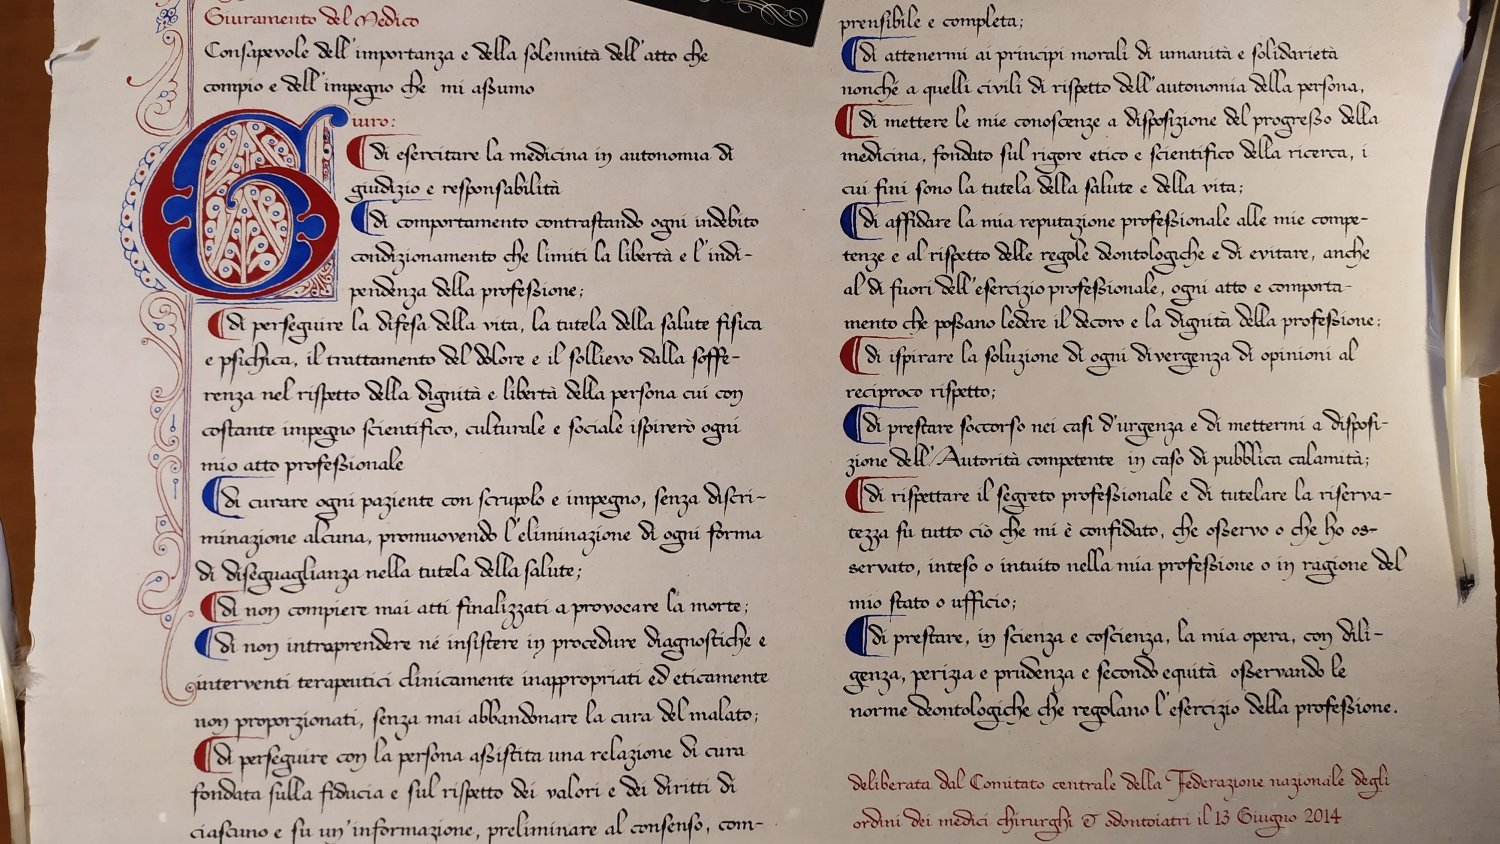 Giuramento del Medico
Consapevole dell'importanza e della solennità dell'atto che
compio e dell'impegno che mi assumo
Giuro:
di esercitare la medicina in autonomia di
giudizio e responsabilità
di comportamento contrastando ogni indebito
condizionamento che limiti la libertà e l'indi-
pendenza della professione;
di perseguire la difesa della vita, la tutela della salute fisica
e psichica, il trattamento del dolore e il sollievo dalla soffe-
renza nel rispetto della dignità e libertà della persona cui con
costante impegno scientifico, culturale e sociale ispirerò ogni
mio atto professionale
di curare ogni paziente con scrupolo e impegno, senza discri-
minazione alcuna, promuovendo l'eliminazione di ogni forma
di diseguaglianza nella tutela della salute;
di non compiere mai atti finalizzati a provocare la morte;
di non intraprendere né insistere in procedure diagnostiche e
interventi terapeutici clinicamente inappropriati ed eticamente
non proporzionati, senza mai abbandonare la cura del malato;
di perseguire con la persona assistita una relazione di cura
fondata sulla fiducia e sul rispetto dei valori e dei diritti di
ciascuno e su un'informazione, preliminare al consenso, com-
prensibile e completa;
di attenermi ai principi morali di umanità e solidarietà
nonché a quelli civili di rispetto dell'autonomia della persona,
di mettere le mie conoscenze a disposizione del progresso della
medicina, fondato sul rigore etico e scientifico della ricerca, i
cui fini sono la tutela della salute e della vita;
di affidare la mia reputazione professionale alle mie compe-
tenze e al rispetto delle regole deontologiche e di evitare, anche
al di fuori dell'esercizio professionale, ogni atto e comporta-
mento che possano ledere il decoro e la dignità della professione;
di ispirare la soluzione di ogni divergenza di opinioni al
reciproco rispetto;
di prestare soccorso nei casi d'urgenza e di mettermi a disposi-
zione dell'Autorità competente in caso di pubblica calamità;
di rispettare il segreto professionale e di tutelare la riserva-
tezza su tutto ciò che mi è confidato, che osservo o che ho os-
servato, inteso o intuito nella mia professione o in ragione del
mio stato o ufficio;
di prestare, in scienza e coscienza, la mia opera, con dili-
genza, perizia e prudenza e secondo equità osservando le
norme deontologiche che regolano l'esercizio della professione.
deliberata dal Comitato centrale della Federazione nazionale degli
ordini dei medici chirurghi & odontoiatri il 13 Giugno 2014